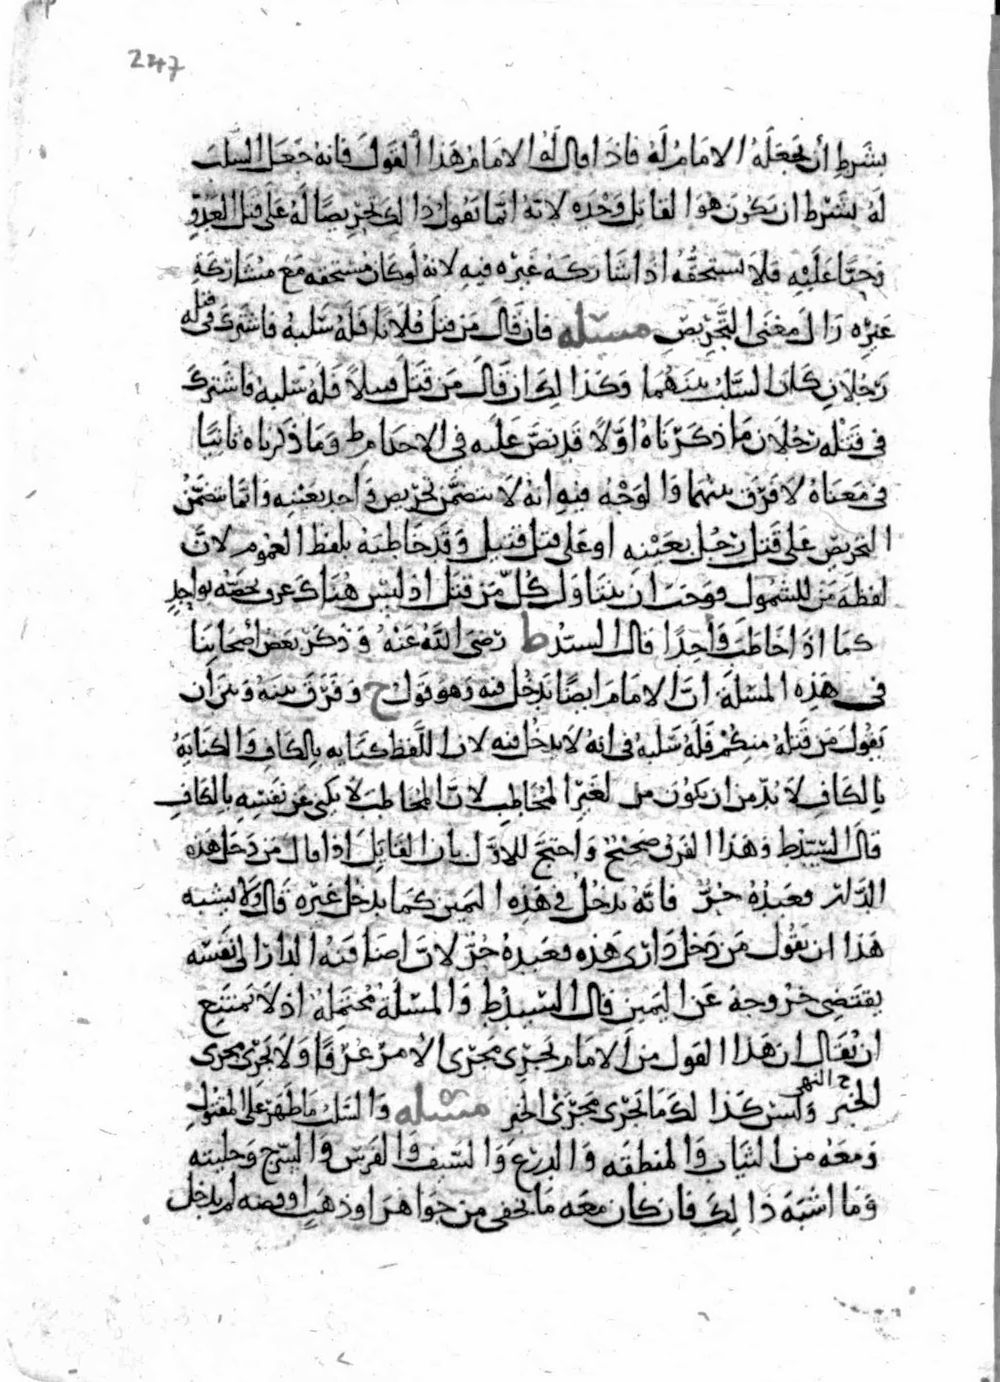 247
بشرط أن يجعله الامام له فاذا قال له الامام هذا القول فانه جعل السلب
له بشرط ان يكون هو القاتل وحده لانه انما يقول ذلك تحريضًا له على قتل العدو
وحثا عليه فلا يستحقه اذا شاركه غيره فيه لانه لو كان يستحقه مع مشاركة
غيره زال معنى التحريض مسئله فان قال من قتل فلانا فله سلبه فاشترك فى قتله
رجلان كان السلب بينهما وكذلك ان قال من قتل قتيلاً فله سلبه فاشترك
فى قتله رجلان ما ذكرناه اوّلا قد نص عليه فى الاحكام ط وما ذكرناه ثانيًا
فى معناه لا فرق بينهما والوجه فيه انه لا يتضمن تحريض واحد بعينه وانما يتضمن
التحريض على قتل رجل بعينه او على قتل قتيل وقد خاطبه بلفظ العموم لانّ
لفظة من للشمول فوجب ان يتناول كل من قتل اذ ليس هناك عرف يخصه بواحد
كما اذا خاطب واحدًا قال السيد ط رضى الله عنه وذكر بعض اصحابنا
فى هذه المسئلة ان الامام ايضًا يدخل فيه وهو قول ح وفرق بينه وبين ان
يقول من قتله منكم فله سلبه فى انه لا يدخل فيه لان اللفظ كنايه بالكاف والكنايه
بالكاف لا بد من ان يكون لغير المخاطِب لانّ المخاطِب لا يكنى عن نفسه بالكاف
قال السيد ط وهذا الفرق صحيح واحتج للاول بان القائل اذا قال من دخل هذه
الدار فعبده حرّ فانه يدخل فى هذه اليمين كما يدخل غيره قال ولا يشبه
هذا ان يقول من دخل دارى هذه فعبده حرّ لانّ اضافته الدار الى نفسه
يقتضى خروجه عن اليمين قال السيد ط والمسئلة محتملة اذ لا يمتنع
ان يقال ان هذا القول من الامام يجرى مجرى الامر عرفًا ولا يجرى مجرى
الخبر وليس كذلك ما يجرى مجرى الخبر مسئله والسلب ما ظهر على المقتول
ح النهى
ومعه من الثياب والمنطقه والدرع والسيف والفرس والسرج وحليته
وما اشبه ذلك فان كان معه ما يخفى من جواهر او ذهب او فضه لم يدخل